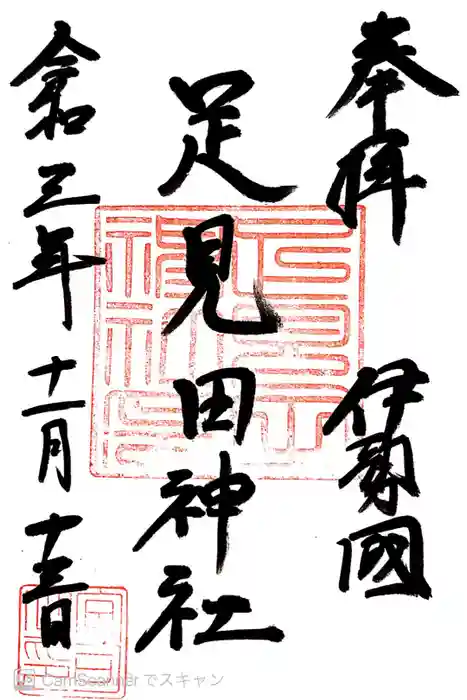 奉拝
伊勢國
足見田神社
令和三年
十一月
十三日
CamScanner でスキャン